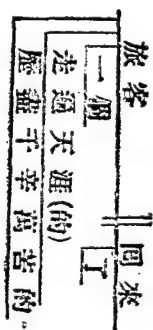 旅客 回來
一個 了
走遍天涯(的)
歷盡千辛萬苦的